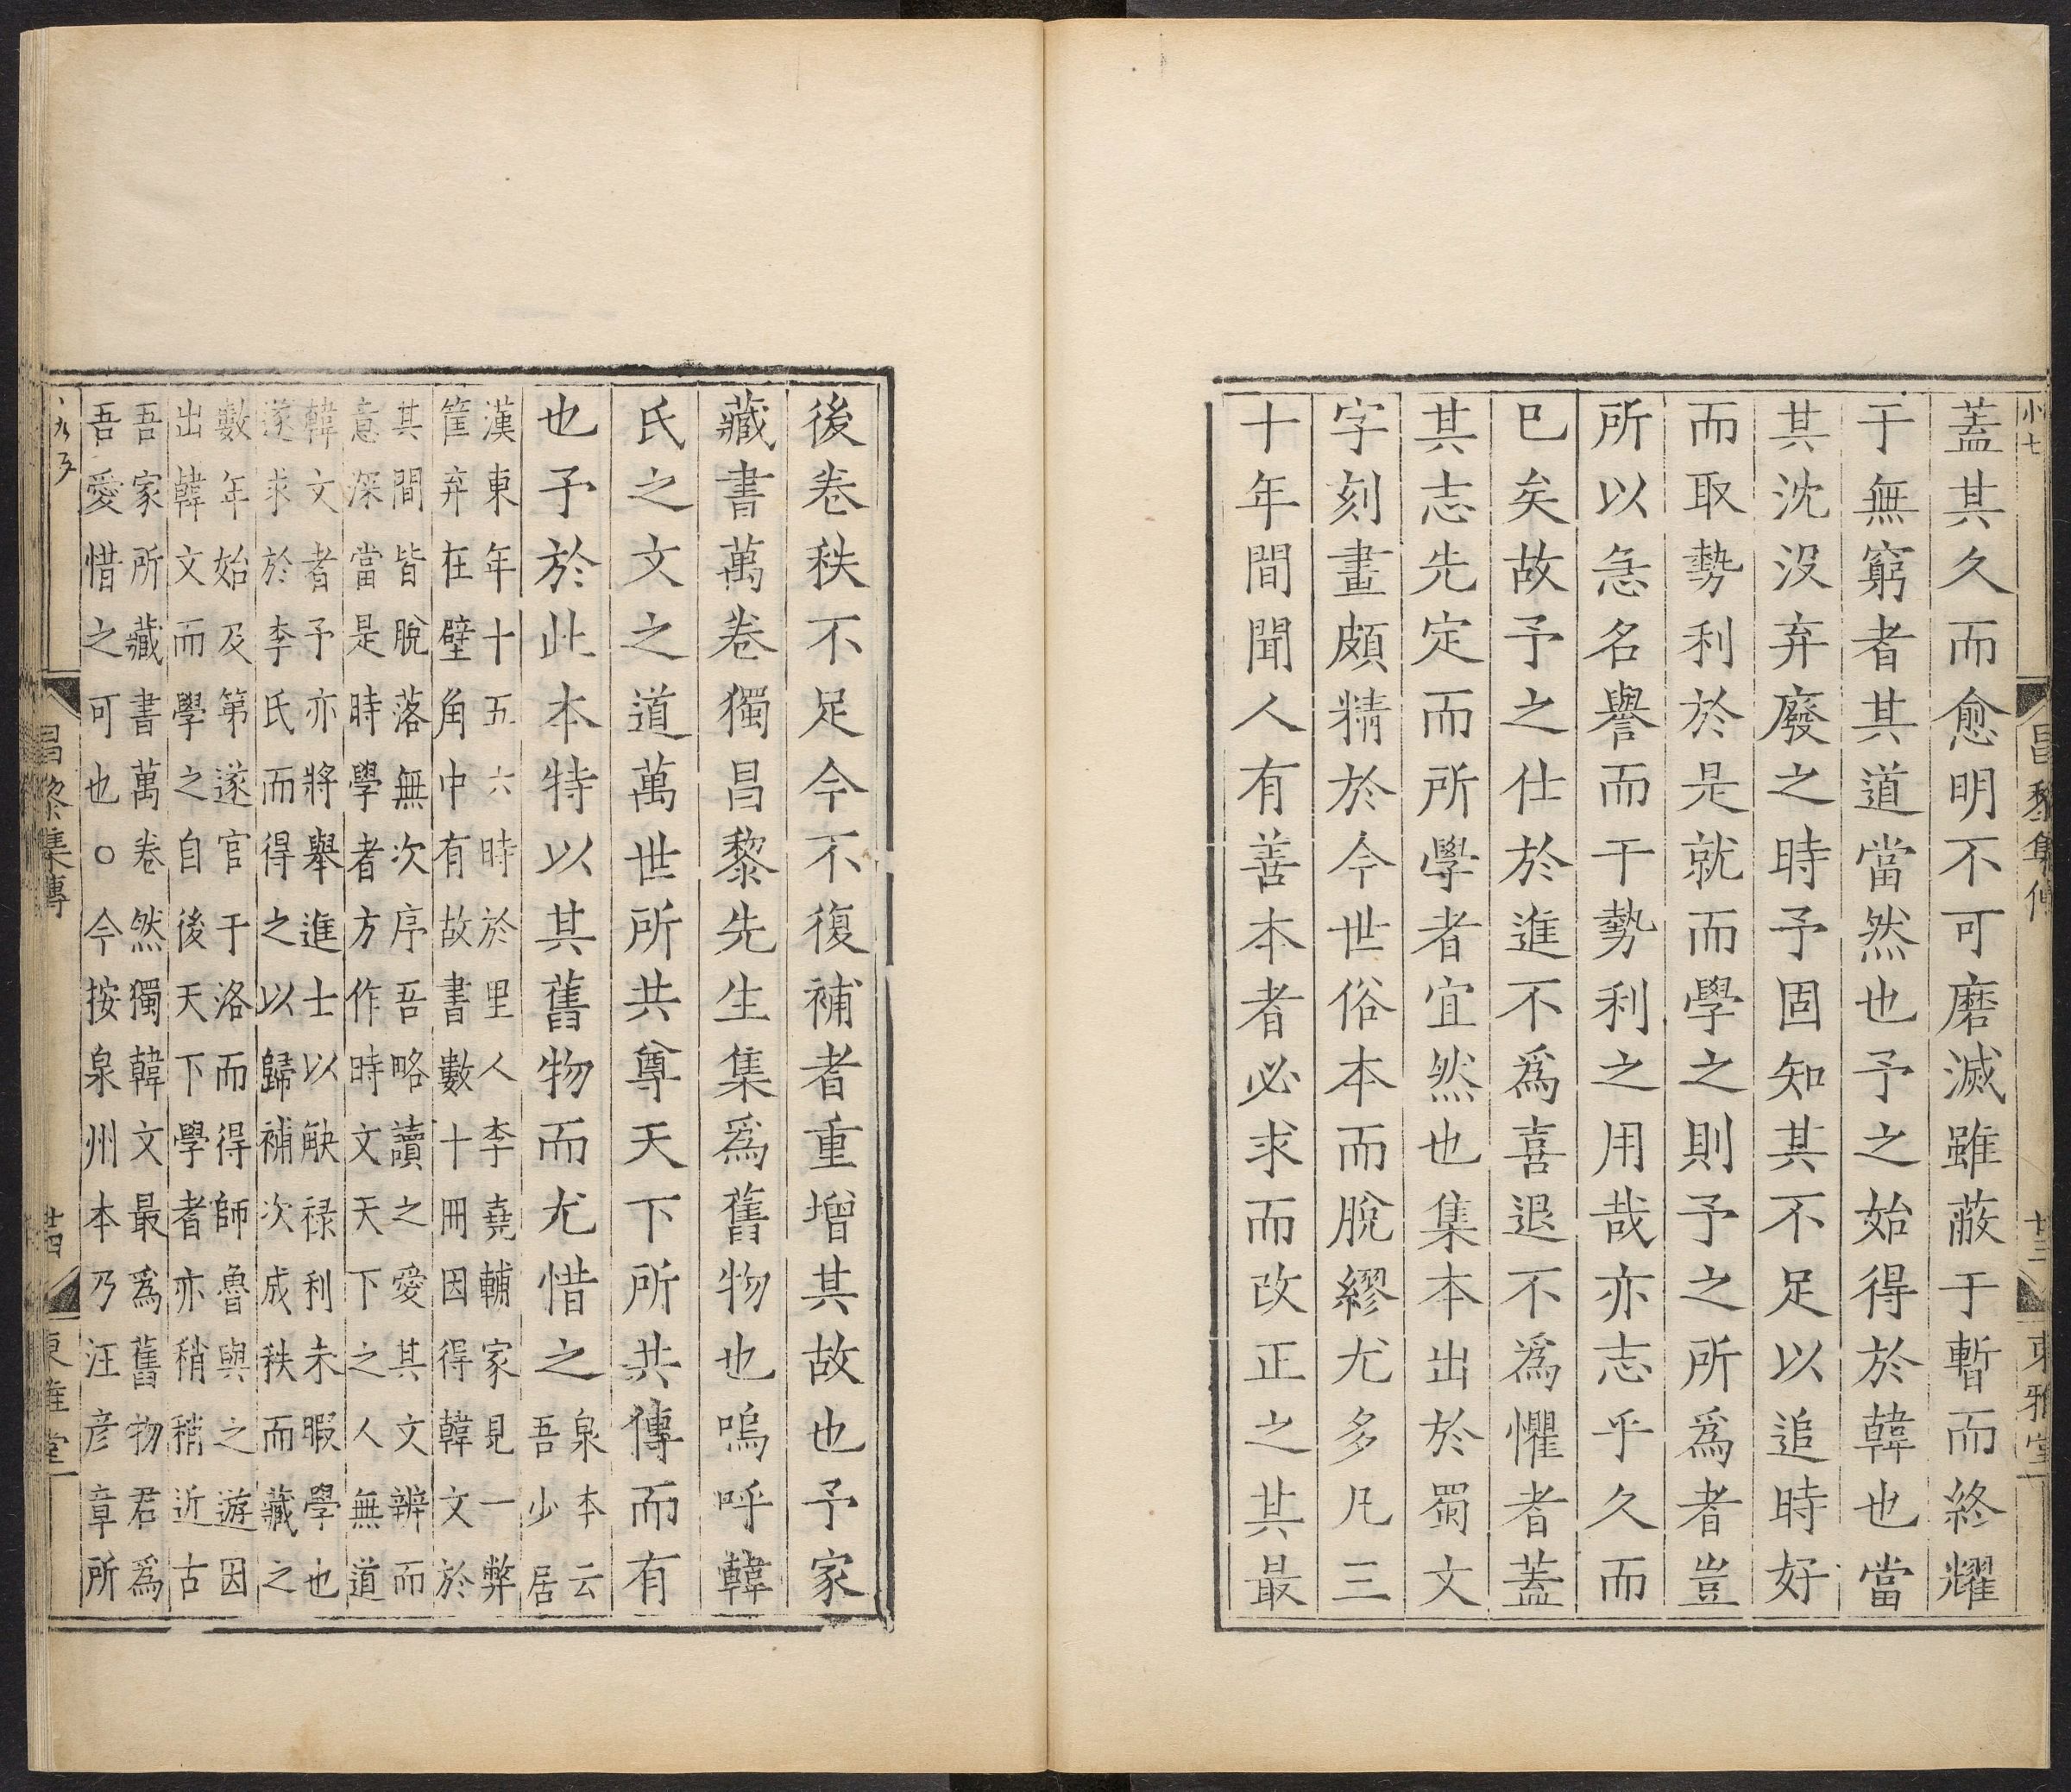 小七
昌黎集傳
廿三
東雅堂
蓋其久而愈明不可磨滅雖蔽于暫而終耀
于無窮者其道當然也予之始得於韓也當
其沈没弃廢之時予固知其不足以追時好
而取勢利於是就而學之則予之所爲者豈
所以急名譽而干勢利之用哉亦志乎久而
巳矣故予之仕於進不爲喜退不爲懼者蓋
其志先定而所學者宜然也集本出於蜀文
字刻畫頗精於今世俗本而脫繆尤多凡三
十年間聞人有善本者必求而改正之其最
後卷秩不足今不復補者重增其故也予家
藏書萬卷獨昌黎先生集爲舊物也嗚呼韓
氏之文之道萬世所共尊天下所共傳而有
也予於此本特以其舊物而尤惜之泉本云
吾少居
漢東年十五六時於里人李堯輔家見一弊
筐弃在壁角中有故書數十冊因得韓文於
其間皆脫落無次序吾略讀之愛其文辨而
意深當是時學者方作時文天下之人無道
韓文者予亦將舉進士以觖禄利未暇學也
遂求於李氏而得之以歸補次成秩而藏之
數年始及第遂官于洛而得師魯與之遊因
出韓文而學之自後天下學者亦稍稍近古
吾家所藏書萬卷然獨韓文最爲舊物君爲
吾愛惜之可也○今按泉州本乃汪彦章所
昌黎集傳
廿四
東雅堂